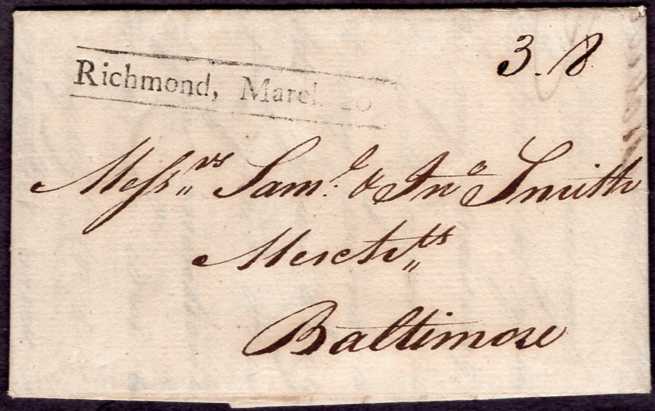 3. 8
Richmond, March 20
Messrs Saml & Jno Smith
Merchts
Baltimore